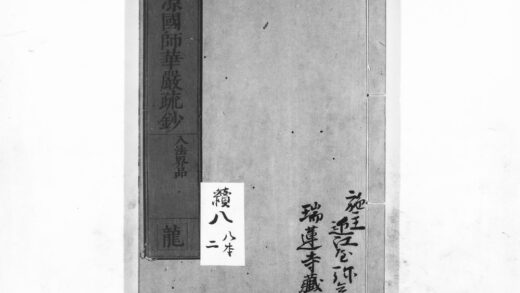 國師華嚴疏鈔
入法界品
龍
續八
八本
二
施主
瑞蓮寺藏